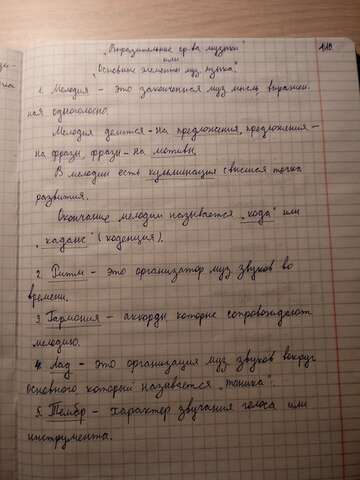 „Выразительные ср-ва музыки"
или
„Основные элементы муз. языка".
1. Мелодия - это законченная муз. мысль выражен-
ная одноголосно.
Мелодия делится - на предложения, предложения -
на фразы, фразы - на мотивы.
В мелодии есть кульминация - высшая точка
развития.
Окончание мелодии называется „кода" или
„каданс" (каденция).
2. Ритм - это организатор муз. звуков во
времени.
3. Гармония - аккорды которые сопровождают
мелодию.
4. Лад - это организация муз. звуков вокруг
основного который называется „тоника".
5. Тембр - характер звучания голоса или
инструмента.